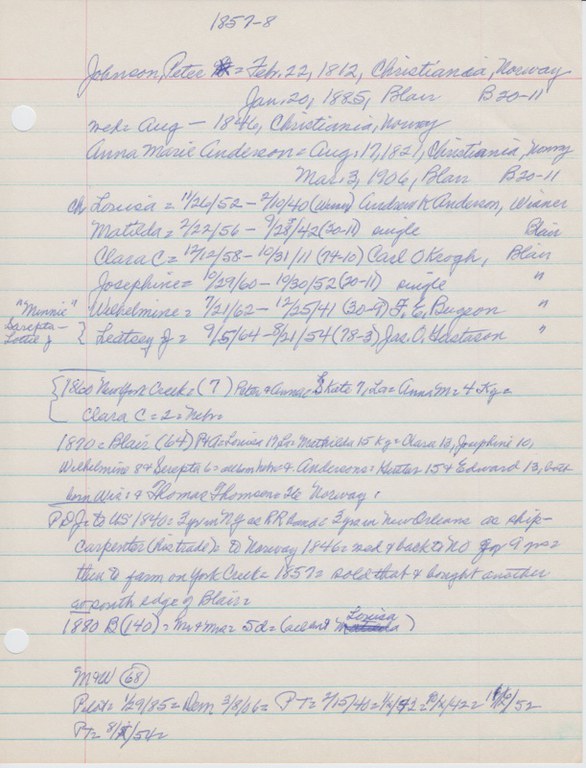 1857-8
Johnson, Peter = Feb. 22, 1812, Christiania, Norway
Jan. 20, 1885, Blair B20-11
md = Aug - 1846, Christiania, Norway
Anna Marie Anderson = Aug. 17, 1821, Christiania, Norway
Mar. 3, 1906, Blair B20-11
ch Louisa = 11/26/52 - 2/10/40 Andrew K Anderson, Winner
Matilda = 2/22/56 - (20-11) single Blair
Clara C = 12/12/58 - 10/31/11 (74-10) Carl O Keogh, Blair
Josephine = 10/29/60 - 10/30/52 (20-11) single "
"Minnie" Wilhelmine = 7/21/62 - 12/25/41 F. E. "
Sarepta -
Lottie J } J = 9/5/64 - 8/21/54 (78-3) Jas. O, "
1860 New York Creek = (7) Peter & Annie Kate 7, La = Anna M = 4 Ky =
Clara C = 2 = Nebr =
1870 = Blair (64) Louisa 17 La = Mathilda 15 Ky = Clara 13, Josephine 10,
Wilhelmine 8 & Sarepta 6 = all born Nebr & Andersons = 15 & Edward 13, both
born Wis = & Thomas Thomson 26 Norway =
P J = to US 1840 = 3 yrs in NY as RR hand = 3 yrs in New Orleans as ship-
carpenter (his trade) = to Norway 1846 = md & back to NO for 9 yrs =
then to farm on York Creek = 1857 = sold that & bought another
so south edge of Blair =
1880 B (140) = Mr & Mrs = 5 d = (all and Louisa)
M & W (68)
Pilot = 1/29/85 = Dem 3/8/06 = PT = 2/15/40 = /52
PT = /54 =